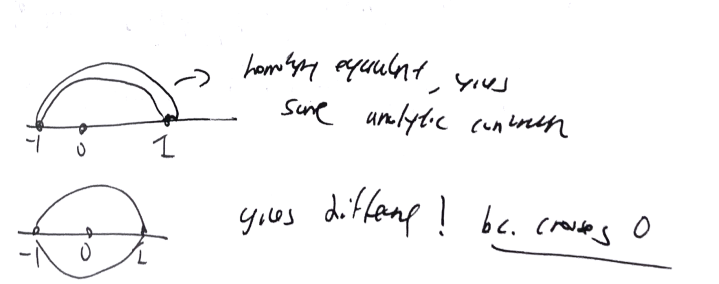 homotopy equivalent, gives
same analytic continuation
-1 0 1
gives different! bc. crosses 0
-1 0 1